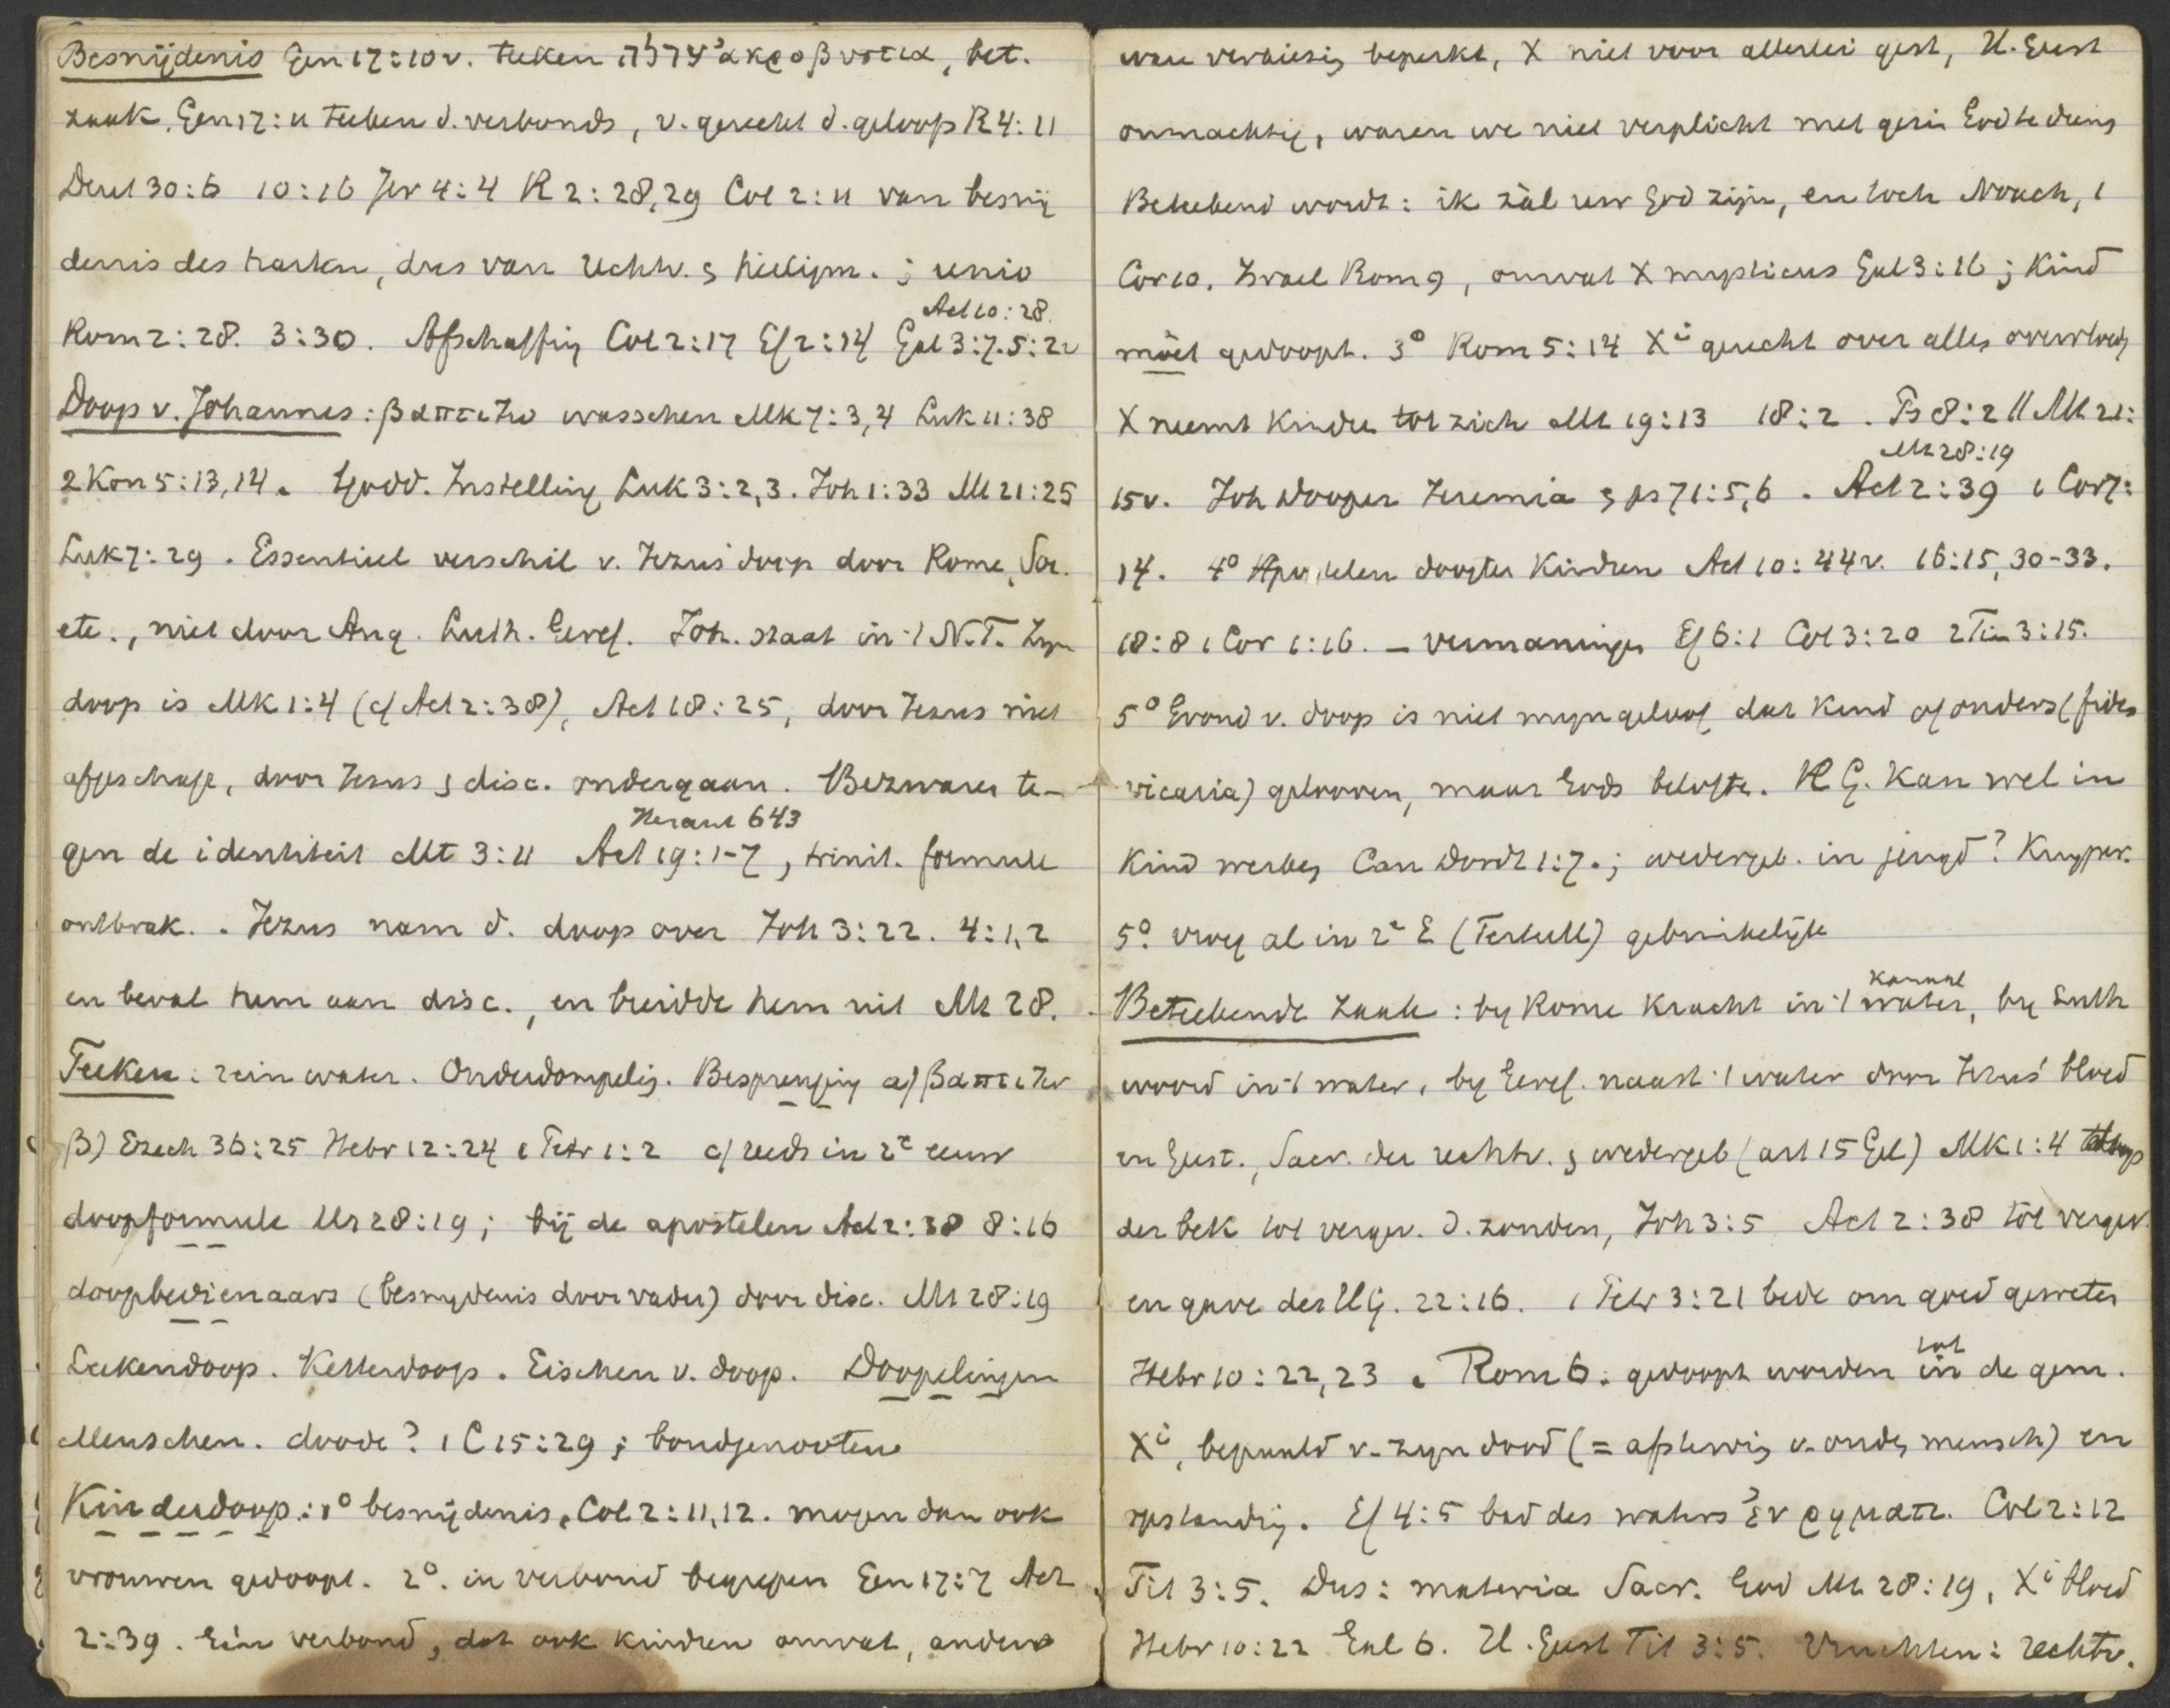 Besnijdenis Gen 17:10v. teeken ערלה ἀκροβυστια, bet.
zaak. Gen 17:11 teeken d. verbonds, v. gerecht d. geloofs R 4:11
Deut 30:6 10:16 Jer 4:4 R 2:28,29 Col 2:11 van besnij
denis des harten, dus van rechtv. & heiligm. ; unio
Act 10:28.
Rom 2:28. 3:30. Afschaffing Col 2:17 Ef 2:14 Gal 3:7. 5:22
Doop v. Johannes: βαπτιζω wasschen Mk 7:3,4 Luk 11:38
2 Kon 5:13,14. Godd. Instelling Luk 3:2,3. Joh 1:33 Mt 21:25
Luk 7:29. Essentieel verschil v. Jezus' doop door Rome, Soc.
etc., niet door Aug. Luth. Geref. Joh. staat in 't N.T. Zyn
doop is Mk 1:4 (cf Act 2:38), Act 18:25, door Jezus niet
afgeschaft, door Jezus & disc. ondergaan. Bezwaren te-
Heraut 643
gen de identiteit Mt 3:11 Act 19:1-7, trinit. formule
ontbrak. . Jezus nam d. doop over Joh 3:22. 4:1,2
en beval hem aan disc., en breidde hem uit Mt 28.
Teeken: rein water. Onderdompelig. Besprenging a) βαπτιζω
β) Ezech 36:25 Hebr 12:24 1 Petr 1:2 c) reeds in 2e eeuw
doopformule Mt 28:19; bij de apostelen Act 2:38 8:16
doopbedienaars (besnydenis door vader) door disc. Mt 28:19
Leekendoop. Ketterdoop. Eischen v. doop. Doopelingen
Menschen. doode? 1 C 15:29; bondgenooten
Kinderdoop: 1° besnijdenis, Col 2:11,12. mogen dan ook
vrouwen gedoopt. 2°. in verbond begrepen Gen 17:7 Act
2:39. Eén verbond, dat ook kinderen omvat, anders
ware verkiezig beperkt, X niet voor allerlei gest, H. Geest
onmachtig, waren we niet verplicht met gezin God te dienen
Beteekend wordt: ik zàl uw God zijn, en toch Noach, 1
Cor 10. Israel Rom 9, omvat X mysticus Gal 3:16; kind
móet gedoopt. 3° Rom 5:14 Xi gerecht over alles overvloedig
X neemt kinderen tot zich Mt 19:13 18:2. Ps 8:2 || Mt 21:
Mt 28:19
15v. Joh Dooper Jeremia & ps 71:5,6. Act 2:39 1 Cor 7:
14. 4° Apostelen doopten kindren Act 10:44v. 16:15, 30-33.
18:8 1 Cor 1:16. - vermaningen Ef 6:1 Col 3:20 2 Tim 3:15.
5° Grond v. doop is niet myn geloof dat kind of ouders (fides
vicaria) gelooven, maar Gods belofte. H G. kan wel in
kind werken Can Dordt 1:7.; wedergeb. in jeugd? Kuyper.
5°. vroeg al in 2e E (Tertull) gebruikelijk
kanaal
Beteekende zaak: by Rome kracht in 't water, by Luth
woord in 't water, by Geref. naast 't water door Jezus' bloed
en Geest., Sacr. der rechtv. & wedergeb (art 15 Gel) Mk 1:4
der bek tot vergev. d. zonden, Joh 3:5 Act 2:38 tot vergev.
en gave des HG. 22:16. 1 Petr 3:21 bede om goed geweten
tot
Hebr 10:22,23. Rom 6: gedoopt worden in de gem.
Xi, bepaald v. zyn dood (= afsterving v. ouden mensch) en
opstanding. Ef 4:5 bad des waters ἐν ρηματι. Col 2:12
Tit 3:5. Dus: materia Sacr. God Mt 28:19, Xi bloed
Hebr 10:22 Gal 6. H. Geest Tit 3:5. Vruchten: rechtv.